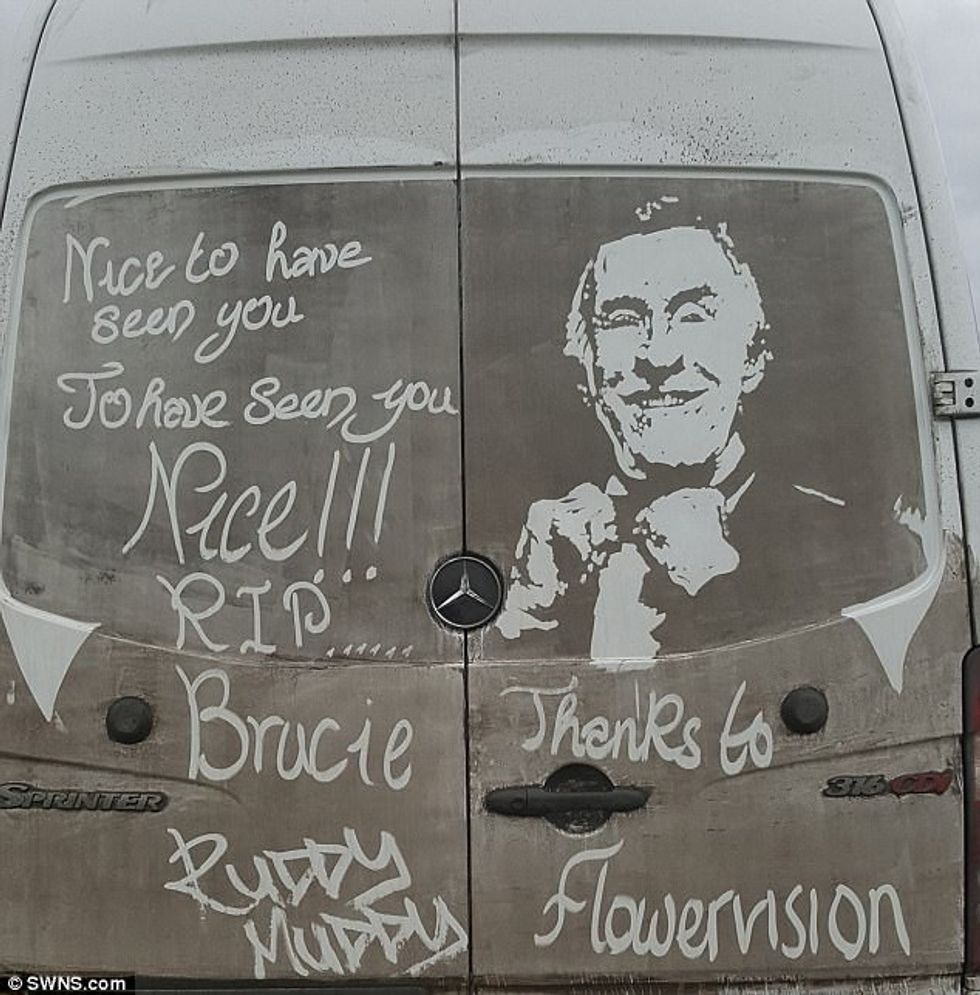 Nice to have
seen you
To have seen you
Nice!!!
RIP......
Brucie
Thanks to
SPRINTER
316 CDI
RUDDY
MUDDY
Flowervision
© SWNS.com